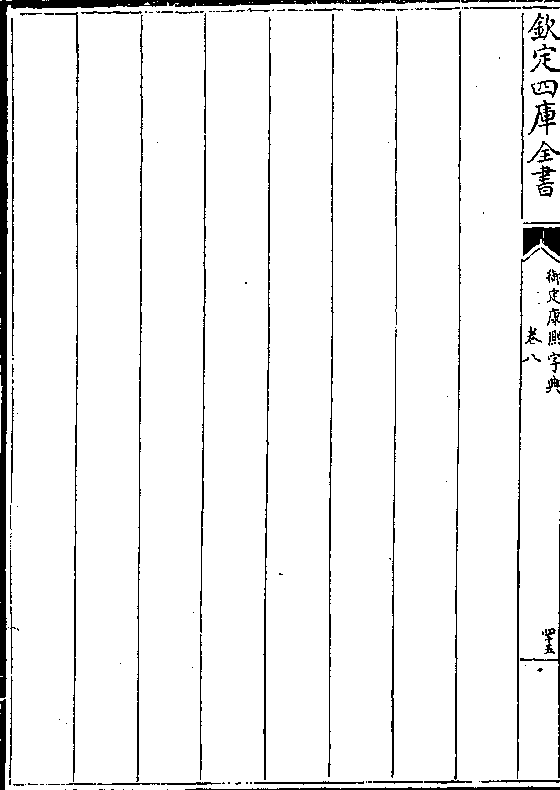 欽定四庫全書
御定康熙字典
卷八
四十五